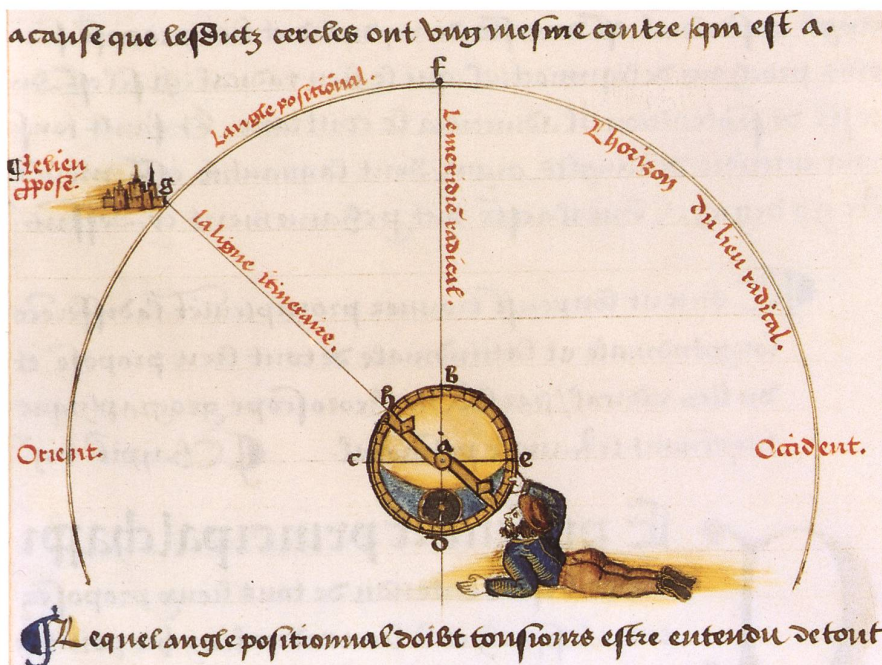 acause que lesdictz cercles ont vng mesme centre / qui est a.
f
Langle positional.
Le meridiē radical
Lhorizon du lieu radical.
Le lieu
ppose.
g
la ligne itineraire.
b
h
a
Orient.
c
e
Occident.
d
Lequel angle positionnal doibt tousiours estre entendu de tout